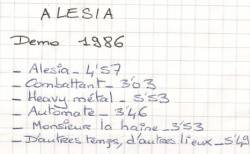 ALESIA
Demo 1986
_ Alesia _ 4'57
_ Combattant _ 3'03
_ Heavy métal _ 5'53
_ Automate _ 3'46
_ Monsieur la haine _ 3'53
_ D'autres temps, d'autres lieux _ 5'49